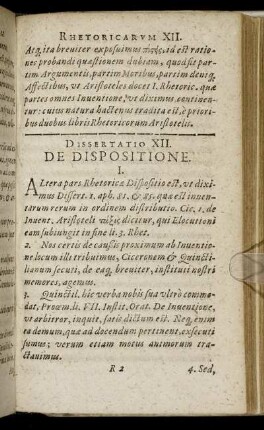 RHETORICARVM XII.
Atq, ita breuiter exposuimus πίστεις, id est ratio-
nes probandi quæstionem dubiam, quod sit par-
tim Argumentis, partim Moribus, partim deniq,
Affectibus, vt Aristoteles docet I. Rhetoric. quæ
partes omnes Inuentione, vt diximus, continen-
tur: cuius natura hactenus tradita est, è priori-
bus duobus libris Rhetoricorum Aristotelis.
DISSERTATIO XII.
DE DISPOSITIONE.
I.
ALtera pars Rhetoricæ Dispositio est, vt dixi-
mus Dissert. 1. aph. 21. & 25. quæ est inuen-
tarum rerum in ordinem distributio. Cic. 1. de
Inuent. Aristoteli τάξις dicitur, qui Elocutioni
eam subiungit in fine li. 3. Rhet.
2. Nos certis de causis proximum ab Inuentio-
ne locum illi tribuimus, Ciceronem & Quincti-
lianum secuti, de eaq, breuiter, instituti nostri
memores, agemus.
3. Quinctil. hîc verba nobis sua vltrò commo-
dat, Proœm. li. VII. Instit. Orat. De Inuentione,
vt arbitror, inquit, satis dictum est. Neq, enim
ea demum, quæ ad docendum pertinent, exsecuti
sumus; verum etiam motus animorum tra-
ctauimus.
R 2
4. Sed,